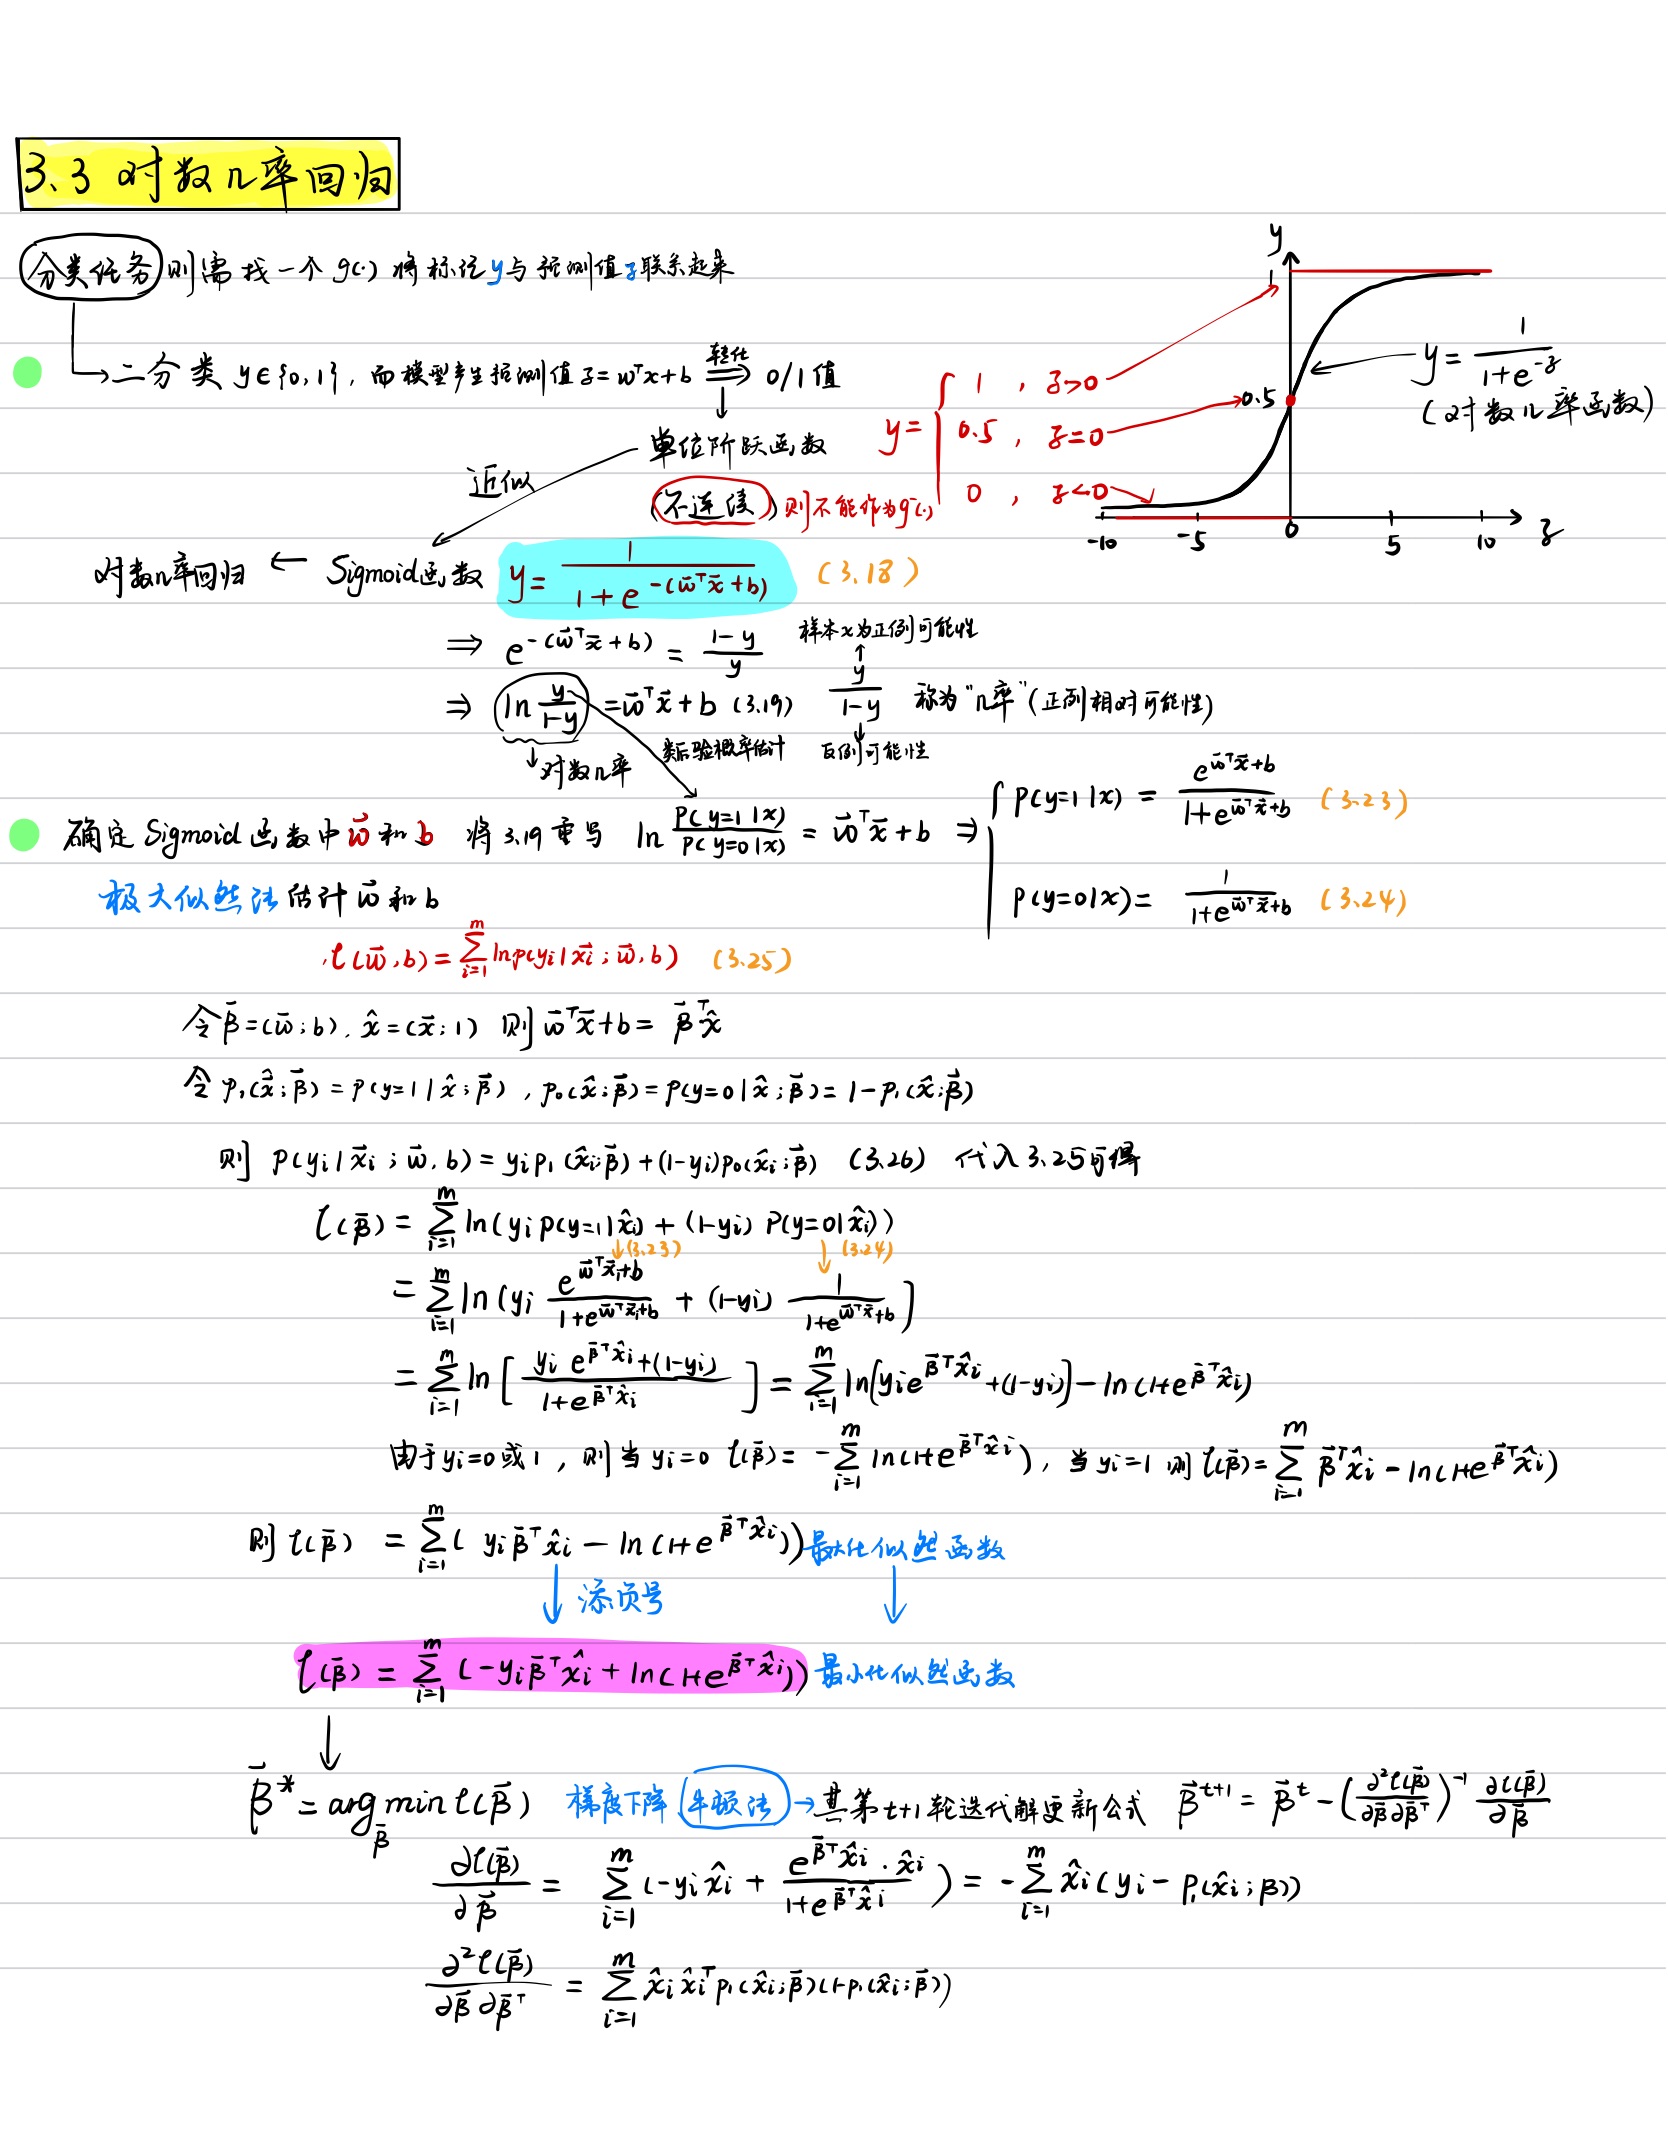 3.3 对数几率回归
分类任务 则需找一个 g(·) 将标记y与预测值z联系起来
二分类 y∈{0,1}, 而模型产生预测值 z=wᵀx+b ⟹ 0/1值
转化
↓
单位阶跃函数
(不连续) 则不能作为g⁻(·)
近似
y = { 1 , z>0
0.5 , z=0
0 , z<0
y
1
0.5
-10 -5 0 5 10 z
y = 1/(1+e^{-z})
(对数几率函数)
对数几率回归 ← Sigmoid函数 y = 1/(1+e^{-(w⃗ᵀx⃗+b)}) (3.18)
⇒ e^{-(w⃗ᵀx⃗+b)} = (1-y)/y
⇒ ln y/(1-y) = w⃗ᵀx⃗+b (3.19)
↓对数几率
类后验概率估计
样本x为正例可能性
↑
y/(1-y) 称为“几率”(正例相对可能性)
↓
反例可能性
确定 Sigmoid 函数中 w⃗ 和 b 将3.19重写 ln p(y=1|x)/p(y=0|x) = w⃗ᵀx⃗+b ⇒ { p(y=1|x) = e^{w⃗ᵀx⃗+b}/(1+e^{w⃗ᵀx⃗+b}) (3.23)
p(y=0|x) = 1/(1+e^{w⃗ᵀx⃗+b}) (3.24)
极大似然法估计 w⃗ 和 b
ℓ(w⃗,b) = Σ_{i=1}^{m} ln p(yi|x⃗i; w⃗,b) (3.25)
令 β⃗=(w⃗;b), x̂=(x⃗;1) 则 w⃗ᵀx⃗+b = β⃗ᵀx̂
令 p₁(x̂;β⃗) = p(y=1|x̂;β⃗), p₀(x̂;β⃗) = p(y=0|x̂;β⃗) = 1-p₁(x̂;β⃗)
则 p(yi|x⃗i; w⃗,b) = yi p₁(x̂i;β⃗) + (1-yi)p₀(x̂i;β⃗) (3.26) 代入3.25可得
ℓ(β⃗) = Σ_{i=1}^{m} ln(yi p(y=1|x̂i) + (1-yi) p(y=0|x̂i))
↓(3.23) ↓(3.24)
= Σ_{i=1}^{m} ln(yi e^{w⃗ᵀx⃗i+b}/(1+e^{w⃗ᵀx⃗i+b}) + (1-yi) 1/(1+e^{w⃗ᵀx⃗+b}))
= Σ_{i=1}^{m} ln[(yi e^{β⃗ᵀx̂i}+(1-yi))/(1+e^{β⃗ᵀx̂i})] = Σ_{i=1}^{m} ln[yi e^{β⃗ᵀx̂i}+(1-yi)] - ln(1+e^{β⃗ᵀx̂i})
由于yi=0或1, 则当 yi=0 ℓ(β⃗) = -Σ_{i=1}^{m} ln(1+e^{β⃗ᵀx̂i}), 当 yi=1 则 ℓ(β⃗) = Σ_{i=1}^{m} β⃗ᵀx̂i - ln(1+e^{β⃗ᵀx̂i})
则 ℓ(β⃗) = Σ_{i=1}^{m}( yi β⃗ᵀx̂i - ln(1+e^{β⃗ᵀx̂i})) 最大化似然函数
↓ 添负号 ↓
ℓ(β⃗) = Σ_{i=1}^{m} (-yi β⃗ᵀx̂i + ln(1+e^{β⃗ᵀx̂i})) 最小化似然函数
↓
β⃗* = arg min_{β⃗} ℓ(β⃗) 梯度下降 牛顿法 → 其第t+1轮迭代解更新公式 β⃗^{t+1} = β⃗^t - (∂²ℓ(β⃗)/∂β⃗∂β⃗ᵀ)⁻¹ ∂ℓ(β⃗)/∂β⃗
∂ℓ(β⃗)/∂β⃗ = Σ_{i=1}^{m} (-yi x̂i + e^{β⃗ᵀx̂i}·x̂i/(1+e^{β⃗ᵀx̂i})) = -Σ_{i=1}^{m} x̂i(yi - p₁(x̂i;β))
∂²ℓ(β⃗)/∂β⃗∂β⃗ᵀ = Σ_{i=1}^{m} x̂i x̂iᵀ p₁(x̂i;β⃗)(1-p₁(x̂i;β⃗))